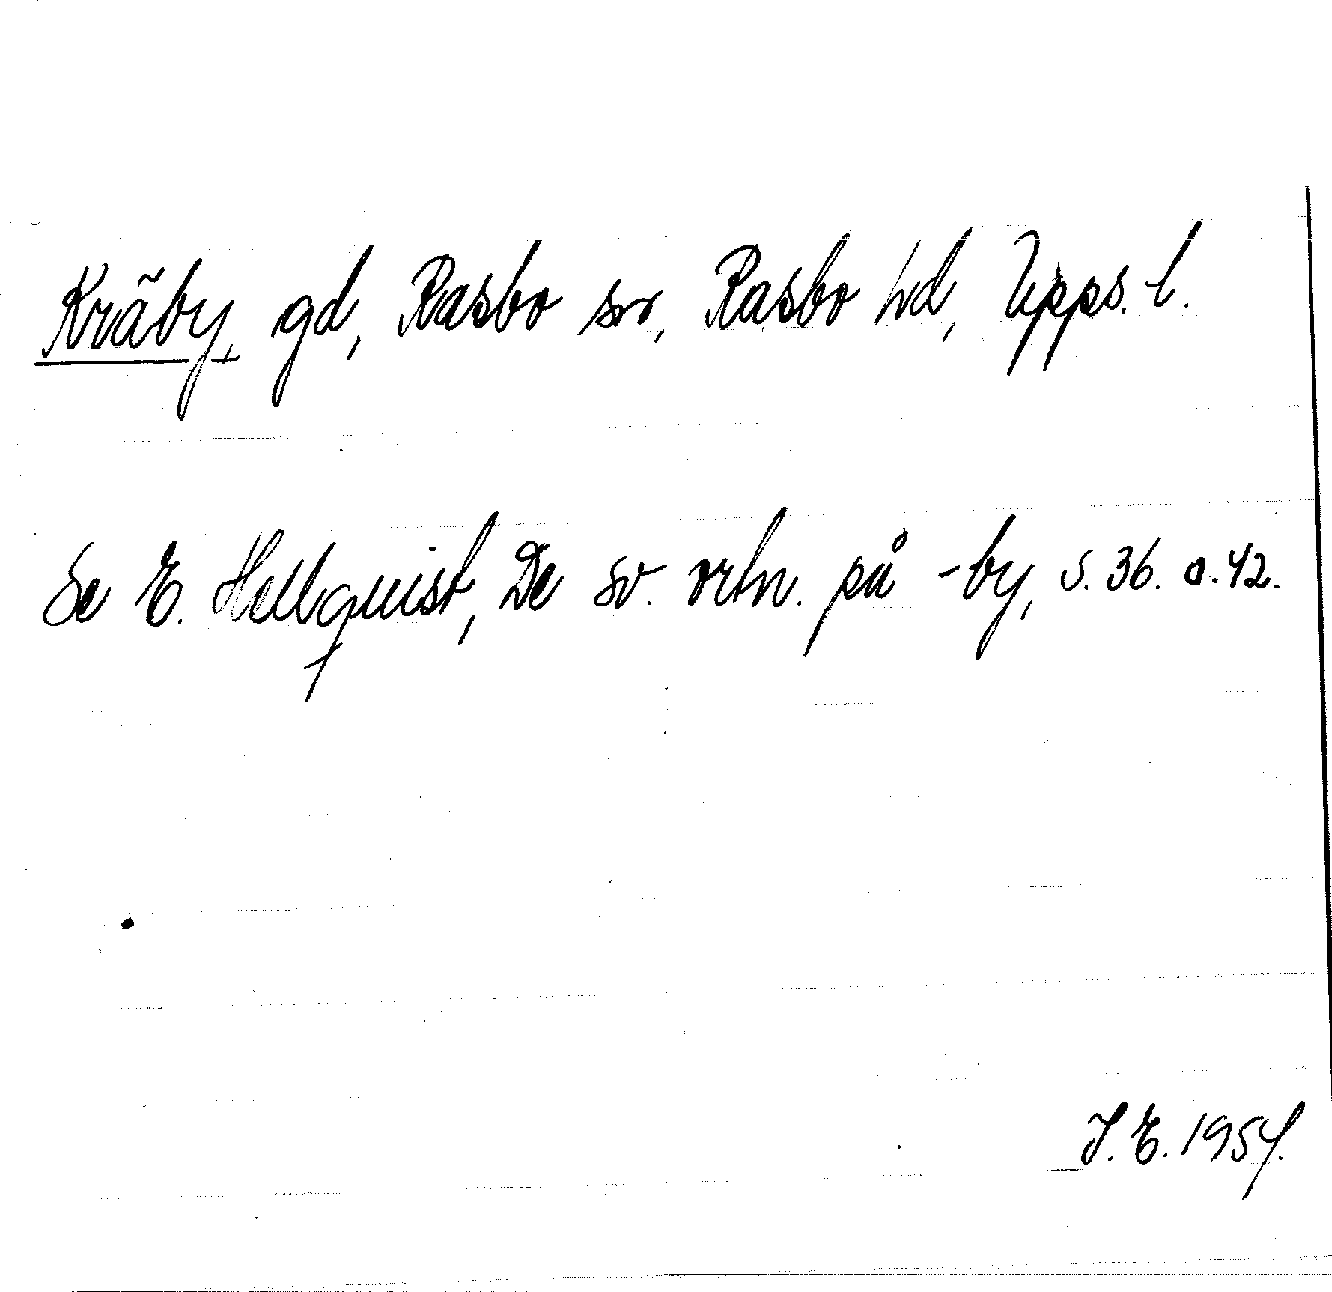 Kräby, gd, Rasbo sn, Rasbo hd, Upps. l.
Se E. Hellquist, De sv. ortn. på -by, s. 36. o. 42.
J. E. 1954.